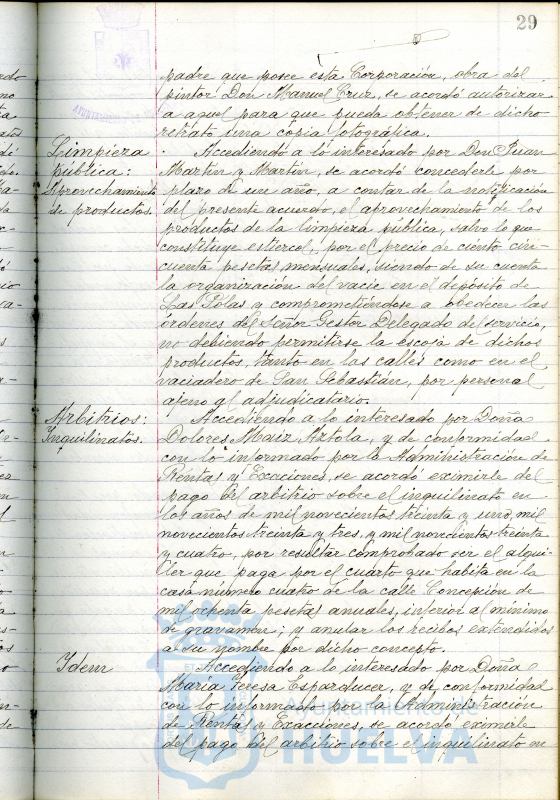 29
padre que posee esta Corporación, obra del
pintor Don Manuel Cruz, se acordó autorizar
a aquel para que pueda obtener de dicho
retrato una copia fotográfica.
Limpieza
pública:
Aprovechamiento
de productos.
Accediendo a lo interesado por Don Juan
Martín y Martín, se acordó concederle por
plazo de un año, a contar de la notificación
del presente acuerdo, el aprovechamiento de los
productos de la limpieza pública, salvo lo que
constituye estiercol, por el precio de ciento cin-
cuenta pesetas mensuales, siendo de su cuenta
la organización del vacie en el depósito de
Las Polas y comprometiéndose a obedecer las
órdenes del Señor Gestor Delegado del servicio,
no debiendo permitirse la escoja de dichos
productos, tanto en las calles como en el
vaciadero de San Sebastián, por personal
ajeno al adjudicatario.
Arbitrios:
Inquilinatos.
Accediendo a lo interesado por Doña
Dolores Maiz Aztola, y de conformidad
con lo informado por la Administración de
Rentas y Exacciones, se acordó eximirle del
pago del arbitrio sobre el inquilinato en
los años de mil novecientos treinta y uno, mil
novecientos treinta y tres, y mil novecientos treinta
y cuatro, por resultar comprobado ser el alqui-
ler que paga por el cuarto que habita en la
casa número cuatro de la calle Concepción de
mil ochenta pesetas anuales, inferior al mínimo
de gravamen; y anular los recibos extendidos
a su nombre por dicho concepto.
Idem
Accediendo a lo interesado por Doña
María Teresa Esparducer, y de conformidad
con lo informado por la Administración
de Rentas y Exacciones, se acordó eximirle
del pago del arbitrio sobre el inquilinato en
HUELVA